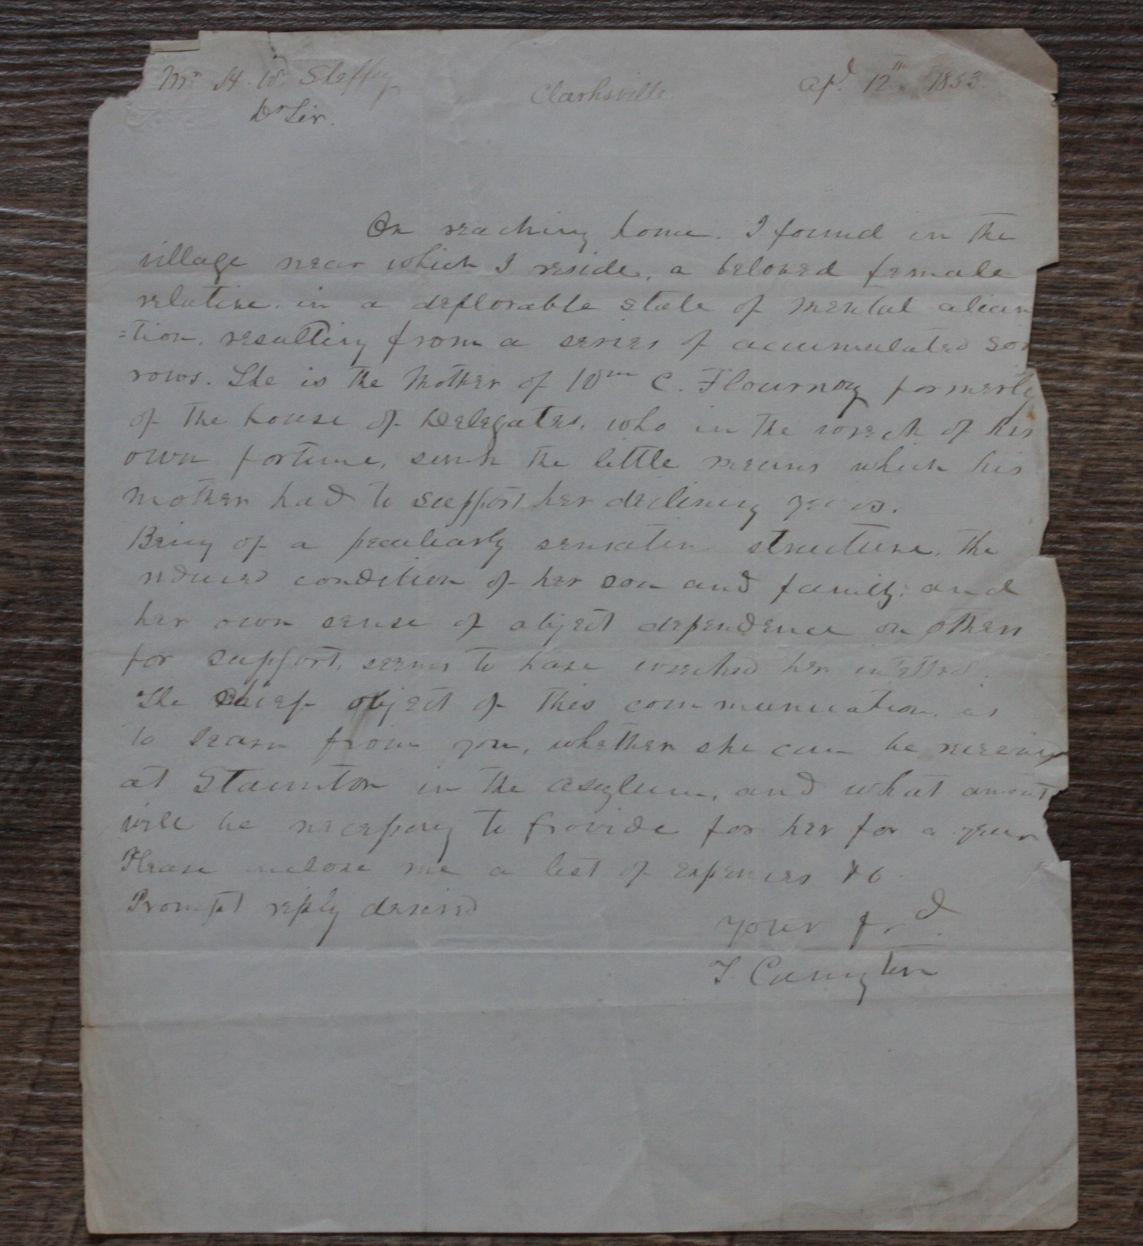 Mr H. W. Sheffey Clarksville Apl 12th 1853
Dr Sir.
On reaching home. I found in the
village near which I reside, a beloved female
relative. in a deplorable state of mental alien
=tion, resulting from a series of accumulated sor
rows. She is the Mother of Wm C. Flournoy formerly
of the house of Delegates, who in the wreck of his
own fortune, sunk the little means which his
mother had to support her declining years.
Being of a peculiarly sensative structure, the
reduced condition of her son and family; and
her own sense of abject dependence on others
for support, seems to have wrecked her intellect.
The chief object of this communication, is
to learn from you, whether she can be received
at Staunton in the asylum, and what amount
will be necessary to provide for her for a year
Please inclose me a list of expenses &c
Prompt reply desired
Your frd.
T Carrington